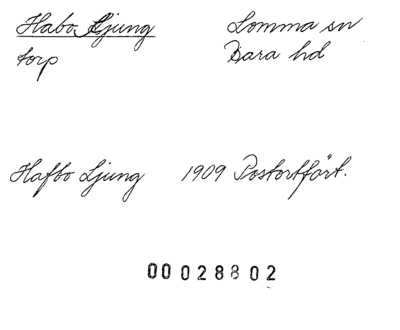 Habo Ljung Lomma sn
torp Bara hd
Hafbo Ljung 1909 Postortfört.
00 028802